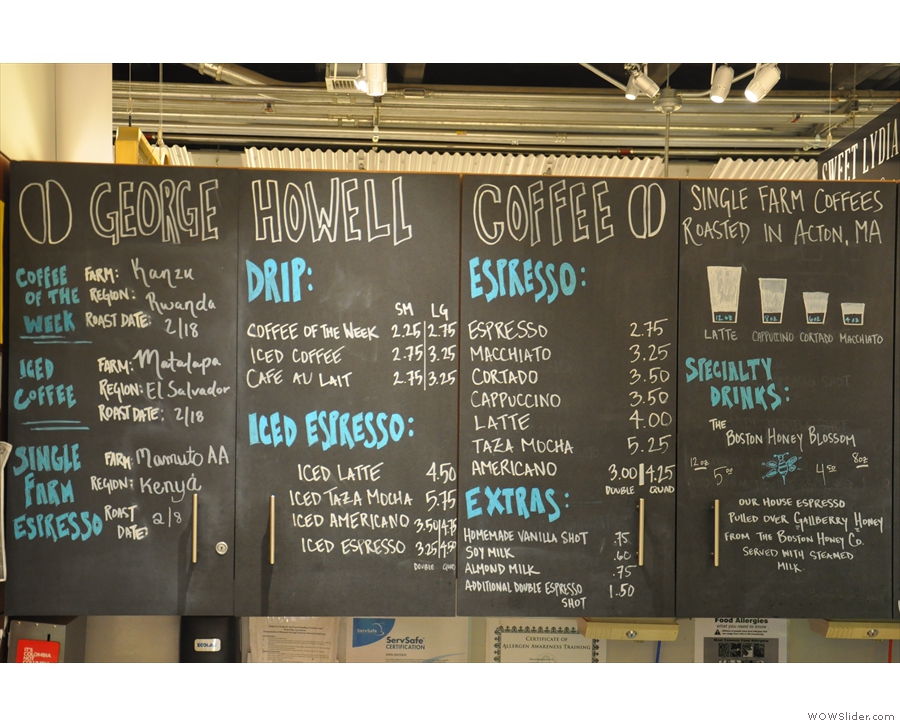 GEORGE HOWELL COFFEE
COFFEE OF THE WEEK
FARM: Kanzu
REGION: Rwanda
ROAST DATE: 2/18
ICED COFFEE
FARM: Matalapa
REGION: El Salvador
ROAST DATE: 2/18
SINGLE FARM ESPRESSO
FARM: Mamuto AA
REGION: Kenya
ROAST DATE: 2/8
DRIP:
SM LG
COFFEE OF THE WEEK 2.25 2.75
ICED COFFEE 2.75 3.25
CAFE AU LAIT 2.75 3.25
ICED ESPRESSO:
ICED LATTE 4.50
ICED TAZA MOCHA 5.75
ICED AMERICANO 3.50 4.75
ICED ESPRESSO 3.25
DOUBLE QUAD
ESPRESSO:
ESPRESSO 2.75
MACCHIATO 3.25
CORTADO 3.50
CAPPUCCINO 3.50
LATTE 4.00
TAZA MOCHA 5.25
AMERICANO 3.00 4.25
DOUBLE QUAD
EXTRAS:
HOMEMADE VANILLA SHOT .75
SOY MILK .60
ALMOND MILK .75
ADDITIONAL DOUBLE ESPRESSO SHOT 1.50
SINGLE FARM COFFEES
ROASTED IN ACTON, MA
12 oz 8 oz 6 oz 4 oz
LATTE CAPPUCCINO CORTADO MACCHIATO
SPECIALTY
DRINKS:
THE
BOSTON HONEY BLOSSOM
12oz 5.00 4.50 8oz
OUR HOUSE ESPRESSO
PULLED OVER GALLBERRY HONEY
FROM THE BOSTON HONEY CO.
SERVED WITH STEAMED
MILK.
SWEET LYDIA
IT'S COLOMBIA
NOT
ECOLAB
ServSafe
ServSafe
CERTIFICATION
CERTIFICATE OF
ALLERGEN AWARENESS TRAINING
Food Allergies
what you need to know
WOWSlider.com